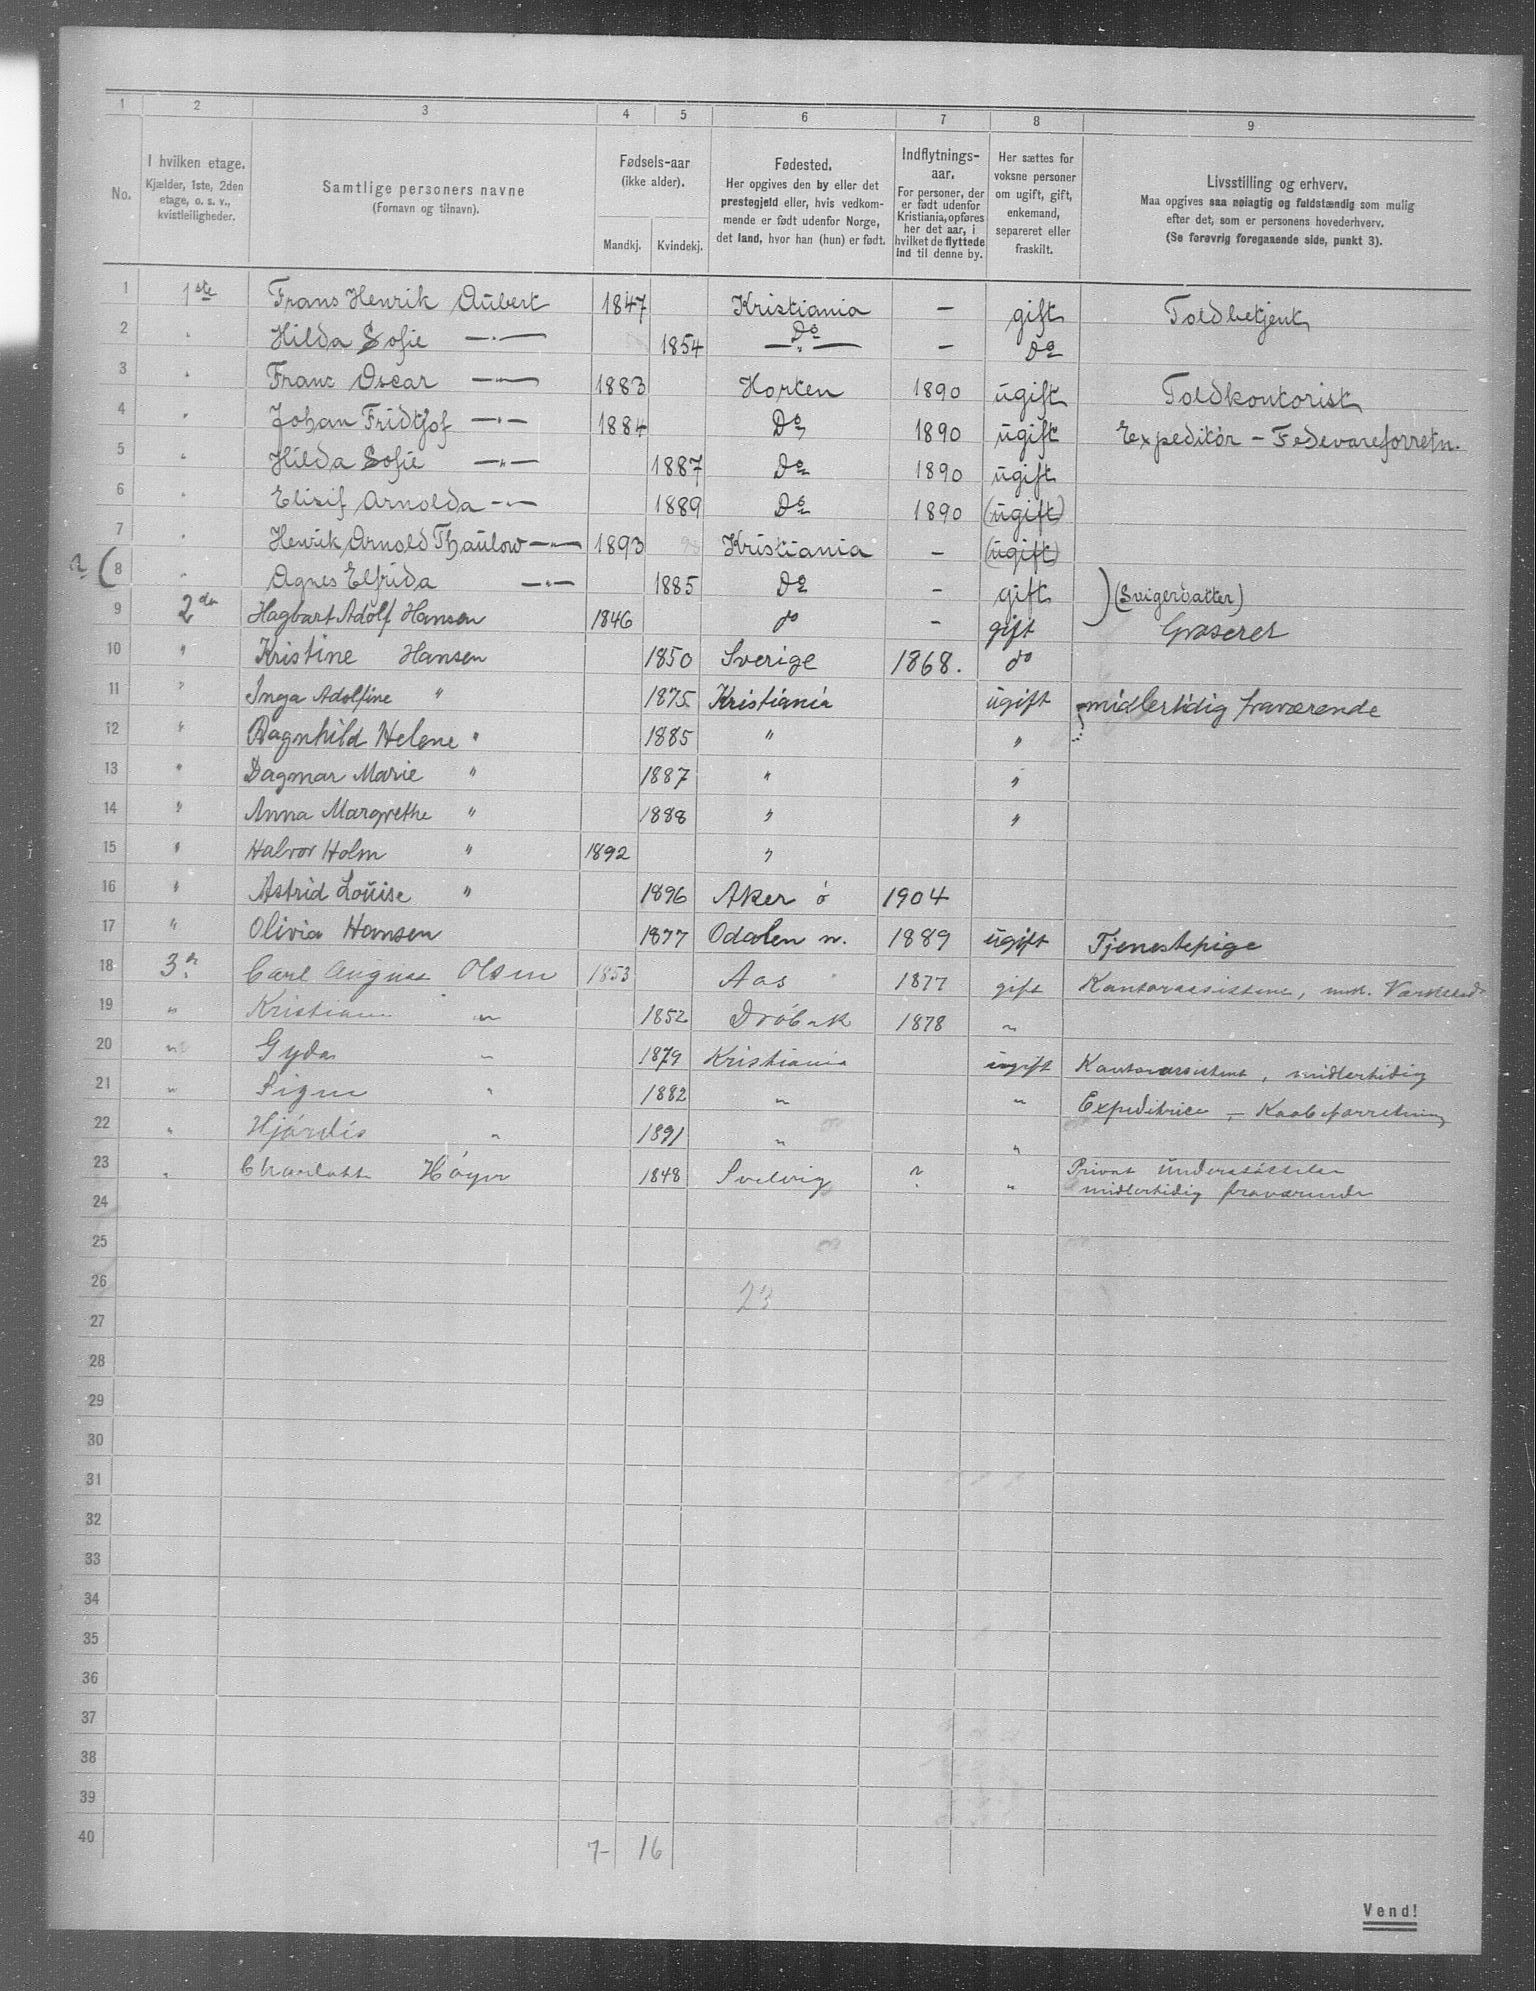 1 2 3 4 5 6 7 8 9
No.
I hvilken etage.
Kjælder, 1ste, 2den
etage, o. s. v.,
kvistleiligheder.
Samtlige personers navne
(Fornavn og tilnavn).
Fødsels-aar
(ikke alder).
Mandkj. Kvindekj.
Fødested.
Her opgives den by eller det
prestegjeld eller, hvis vedkom-
mende er født udenfor Norge,
det land, hvor han (hun) er født.
Indflytnings-
aar.
For personer, der
er født udenfor
Kristiania, opføres
her det aar, i
hvilket de flyttede
ind til denne by.
Her sættes for
voksne personer
om ugift, gift,
enkemand,
separeret eller
fraskilt.
Livsstilling og erhverv.
Maa opgives saa nøiagtig og fuldstændig som mulig
efter det, som er personens hovederhverv.
(Se forøvrig foregaaende side, punkt 3).
1 1ste Frans Henrik Aubert 1847 Kristiania — gift Toldbetjent
2 " Hilda Sofie —"— 1854 Do —"— — Do
3 " Franc Oscar —"— 1883 Horten 1890 ugift Toldkontorist
4 " Johan Fridthjof —"— 1884 Do 1890 ugift Expeditør – Fedevareforretn.
5 " Hilda Sofie —"— 1887 Do 1890 ugift
6 " Elisif Arnolda —"— 1889 Do 1890 (ugift)
7 " Henrik Arnold Thaulow —"— 1893 Kristiania — (ugift)
? ( 8 " Agnes Elfrida —"— 1885 Do — gift ) (Svigerdatter)
9 2den Hagbart Adolf Hansen 1846 do — gift Groserer
10 " Kristine Hansen 1850 Sverige 1868. do
11 " Inga Adolfine " 1875 Kristiania ugift midlertidig fraværende
12 " Ragnhild Helene " 1885 " "
13 " Dagmar Marie " 1887 " "
14 " Anna Margrethe " 1888 " "
15 " Halvor Holm " 1892 "
16 " Astrid Louise " 1896 Aker ó 1904
17 " Olivia Hansen 1877 Odalen n. 1889 ugift Tjenestepige
18 3die Carl August Olsen 1853 Aas 1877 gift Kontorassistent, mek. Værksted
19 " Kristiane " 1852 Drøbak 1878 "
20 " Gyda " 1879 Kristiania ugift Kontorassistent, midlertidig
21 " Signe " 1882 " " Expeditrice – Kaabeforretning
22 " Hjórdis " 1891 " "
23 " Charlotte Høyer 1848 Svelvig ? " Privat understøttelse
midlertidig fraværende
24
25
26 23
27
28
29
30
31
32
33
34
35
36
37
38
39
40 7– 16
Vend!